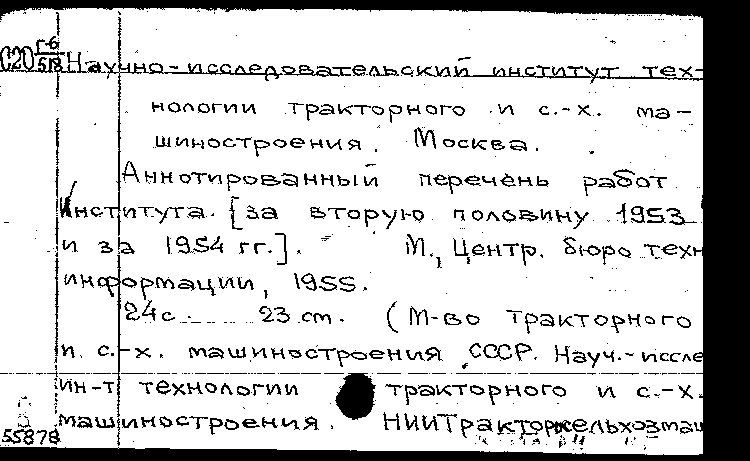 С20 Г-6/518 Научно-исследовательский институт тех-
нологии тракторного и с.-х. ма-
шиностроения. Москва.
Аннотированный перечень работ
Института. [за вторую половину 1953
и за 1954 гг.]. М., Центр. бюро техн
информации, 1955.
24с. 23 см. (М-во тракторного
и с.-х. машиностроения СССР. Науч.-иссле
ин-т технологии тракторного и с.-х.
машиностроения. НИИТракторсельхозмаш
55878